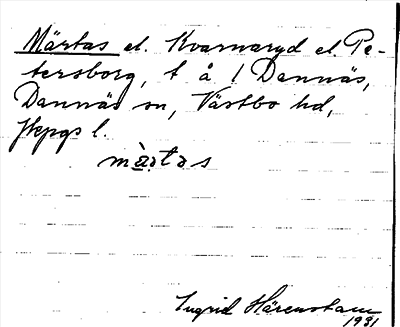 Märtas el. Kvarnaryd el. Pe-
tersborg, t å 1 Dannäs,
Dannäs sn, Västbo hd,
Jkpgs l.
màrtas
Ingrid Härenstam
1931